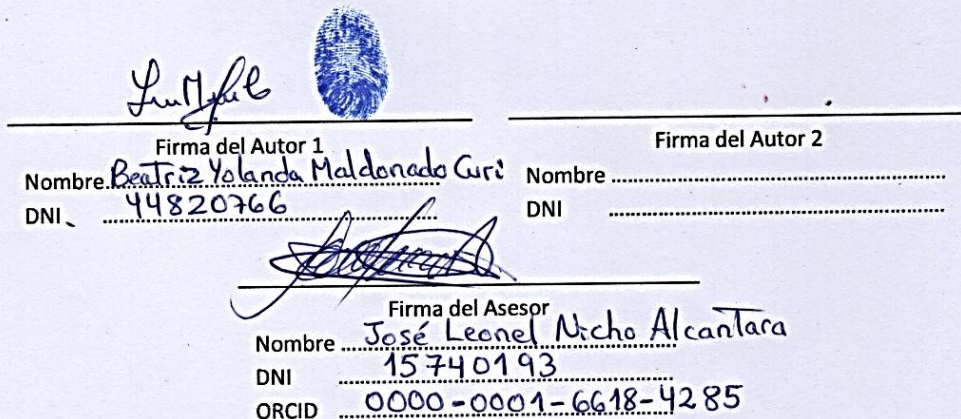 Firma del Autor 1
Nombre Beatriz Yolanda Maldonado Curi
DNI 44820766
Firma del Autor 2
Nombre
DNI
Firma del Asesor
Nombre José Leonel Nicho Alcantara
DNI 15740193
ORCID 0000-0001-6618-4285